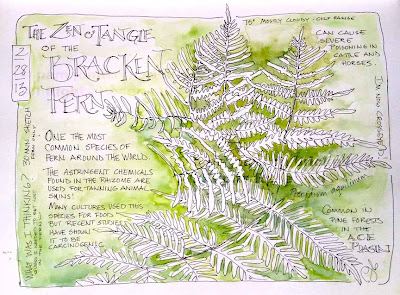 THE ZEN O' TANGLE
OF THE
BRACKEN
FERN
2
28
13
76° MOSTLY CLOUDY
CAN CAUSE
SEVERE
POISONING IN
CATTLE AND
HORSES.
ONE THE MOST
COMMON SPECIES OF
FERN AROUND THE WORLD.
THE ASTRINGENT CHEMICALS
FOUND IN THE RHIZOME ARE
USED FOR TANNING ANIMAL
SKINS!
MANY CULTURES USED THIS
SPECIES FOR FOOD
BUT RECENT STUDIES
HAVE SHOWN
IT TO BE
CARCINOGENIC
WHAT WAS I THINKING?
30 MIN. SKETCH
COMMON IN
PINE FORESTS
IN THE
ACE
BASIN